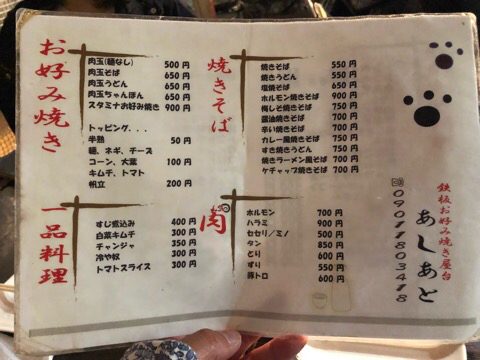 お好み焼き
肉玉(麺なし) 500円
肉玉そば 650円
肉玉うどん 650円
肉玉ちゃんぽん 650円
スタミナお好み焼き 900円
トッピング...
半熟 50円
麺、ネギ、チーズ
コーン、大葉 100円
キムチ、トマト
帆立 200円
焼きそば
焼きそば 550円
焼きうどん 550円
塩焼そば 650円
ホルモン焼きそば 900円
梅しそ焼きそば 750円
醤油焼きそば 700円
辛い焼きそば 700円
カレー風焼きそば 750円
すき焼きうどん 750円
焼きラーメン風そば 700円
ケチャップ焼きそば 700円
一品料理
すじ煮込み 400円
白菜キムチ 300円
チャンジャ 350円
冷や奴 300円
トマトスライス 300円
肉
ホルモン 700円
ハラミ 900円
セセリ/ミノ 500円
タン 850円
とり 600円
ずり 550円
豚トロ 600円
鉄板お好み焼き屋台
あしあと
09011803418